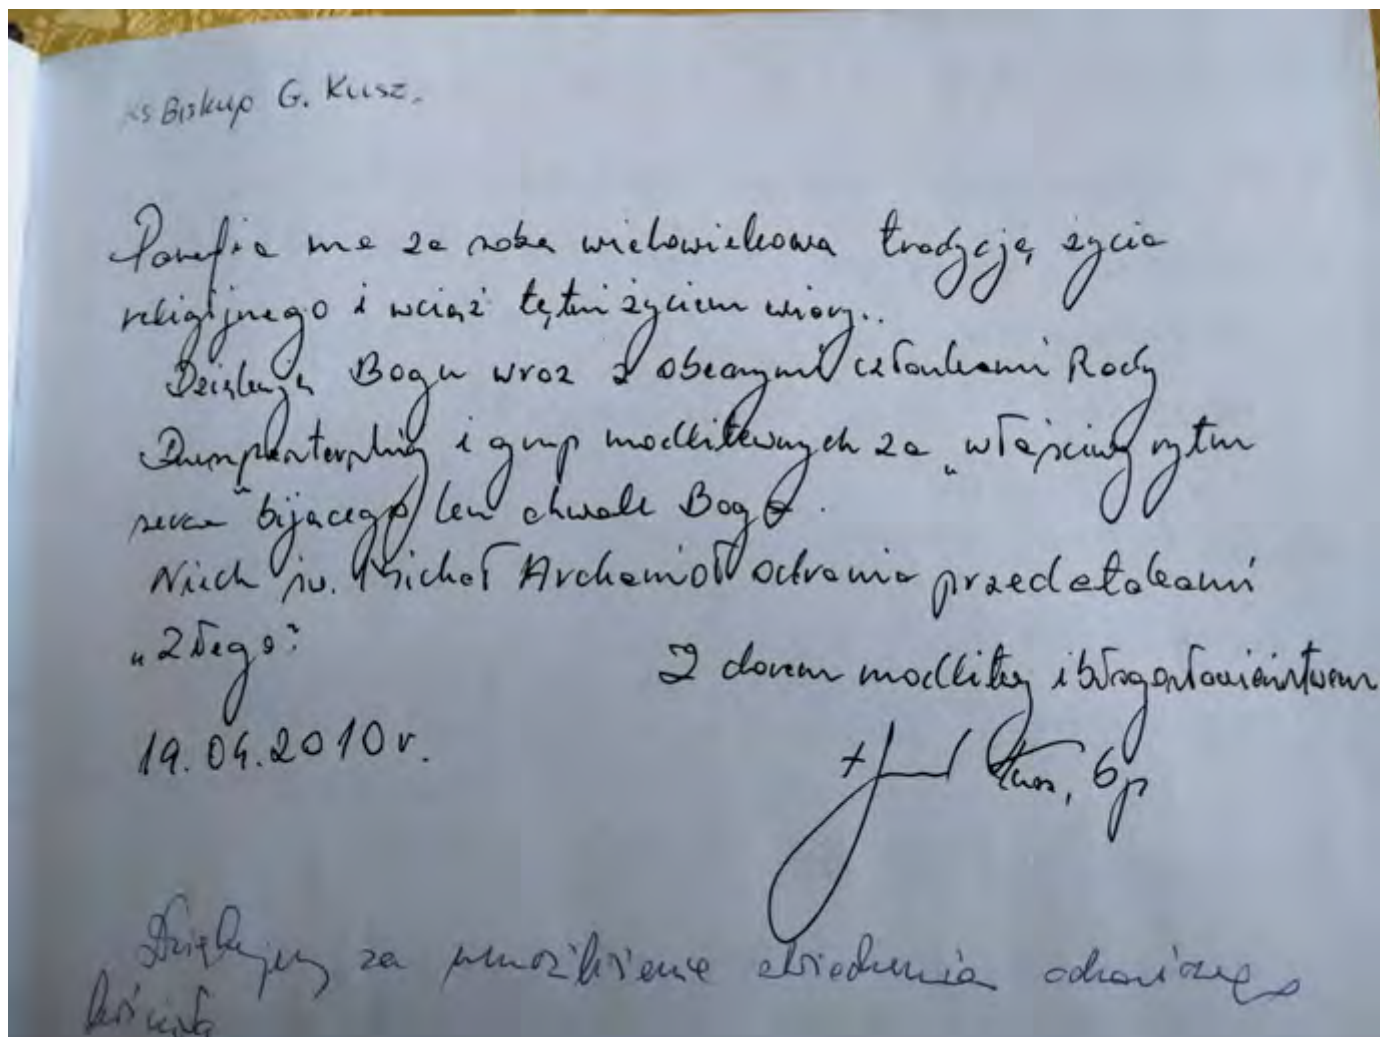 ks Biskup G. Kusz.
Parafia ma za sobą wielowiekową tradycję życia
religijnego i wciąż tętni życiem wiary..
Dziękuję Bogu wraz z obecnymi członkami Rady
Duszpasterskiej i grup modlitewnych za „właściwy rytm
serca" bijącego ku chwale Boga.
Niech św. Michał Archanioł ochrania przed atakami
„Złego".
Z darem modlitwy i błogosławieństwem
19.04.2010 r.
+ Kusz, bp
Dziękujemy za umożliwienie zwiedzenia
kościoła